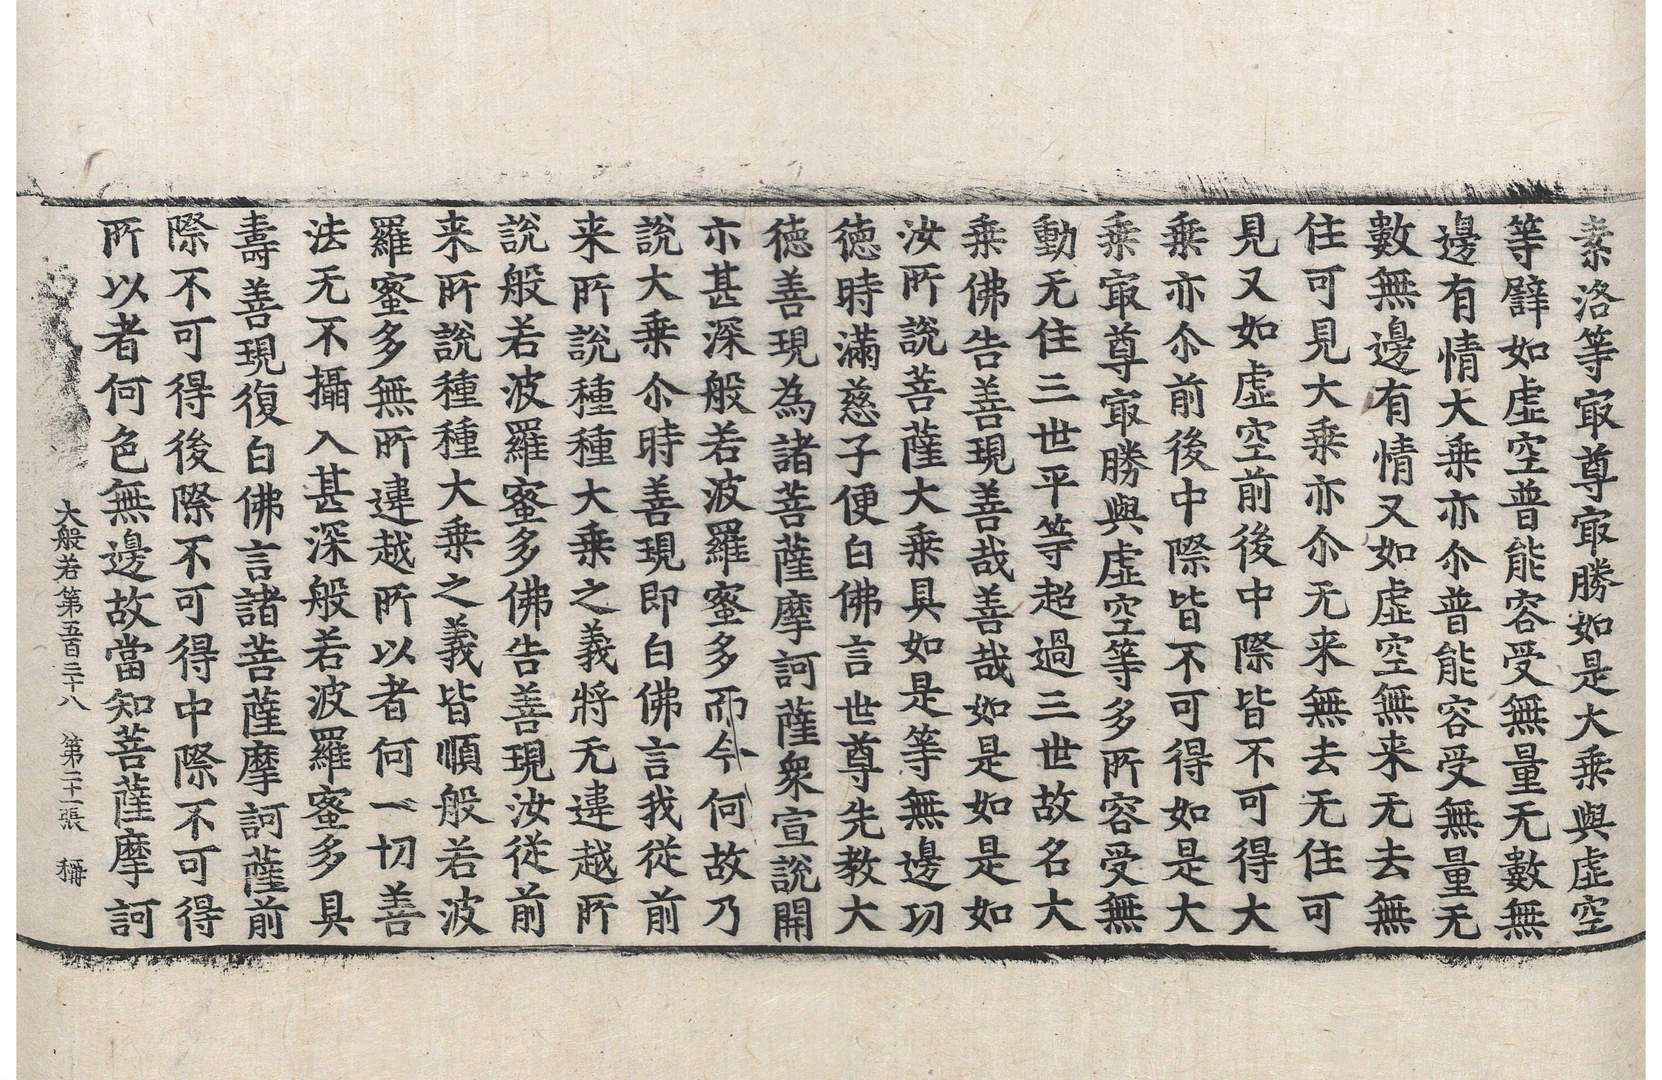 素洛等㝡尊㝡勝如是大乗與虛空
等譬如虛空普能容受無量无數無
邊有情大乗亦尒普能容受無量无
數無邊有情又如虛空無来无去無
住可見大乗亦尒无来無去无住可
見又如虛空前後中際皆不可得大
乗亦尒前後中際皆不可得如是大
乗㝡尊㝡勝與虛空等多所容受無
動无住三世平等超過三世故名大
乗佛告善現善哉善哉如是如是如
汝所說菩薩大乗具如是等無邊功
德時滿慈子便白佛言世尊先教大
德善現為諸菩薩摩訶薩衆宣說開
示甚深般若波羅蜜多而今何故乃
說大乗尒時善現即白佛言我從前
来所說種種大乗之義將无違越所
說般若波羅蜜多佛告善現汝從前
来所說種種大乗之義皆順般若波
羅蜜多無所違越所以者何一切善
法无不攝入甚深般若波羅蜜多具
壽善現復白佛言諸菩薩摩訶薩前
際不可得後際不可得中際不可得
所以者何色無邊故當知菩薩摩訶
大般若第五百三十八 第二十一張 稱